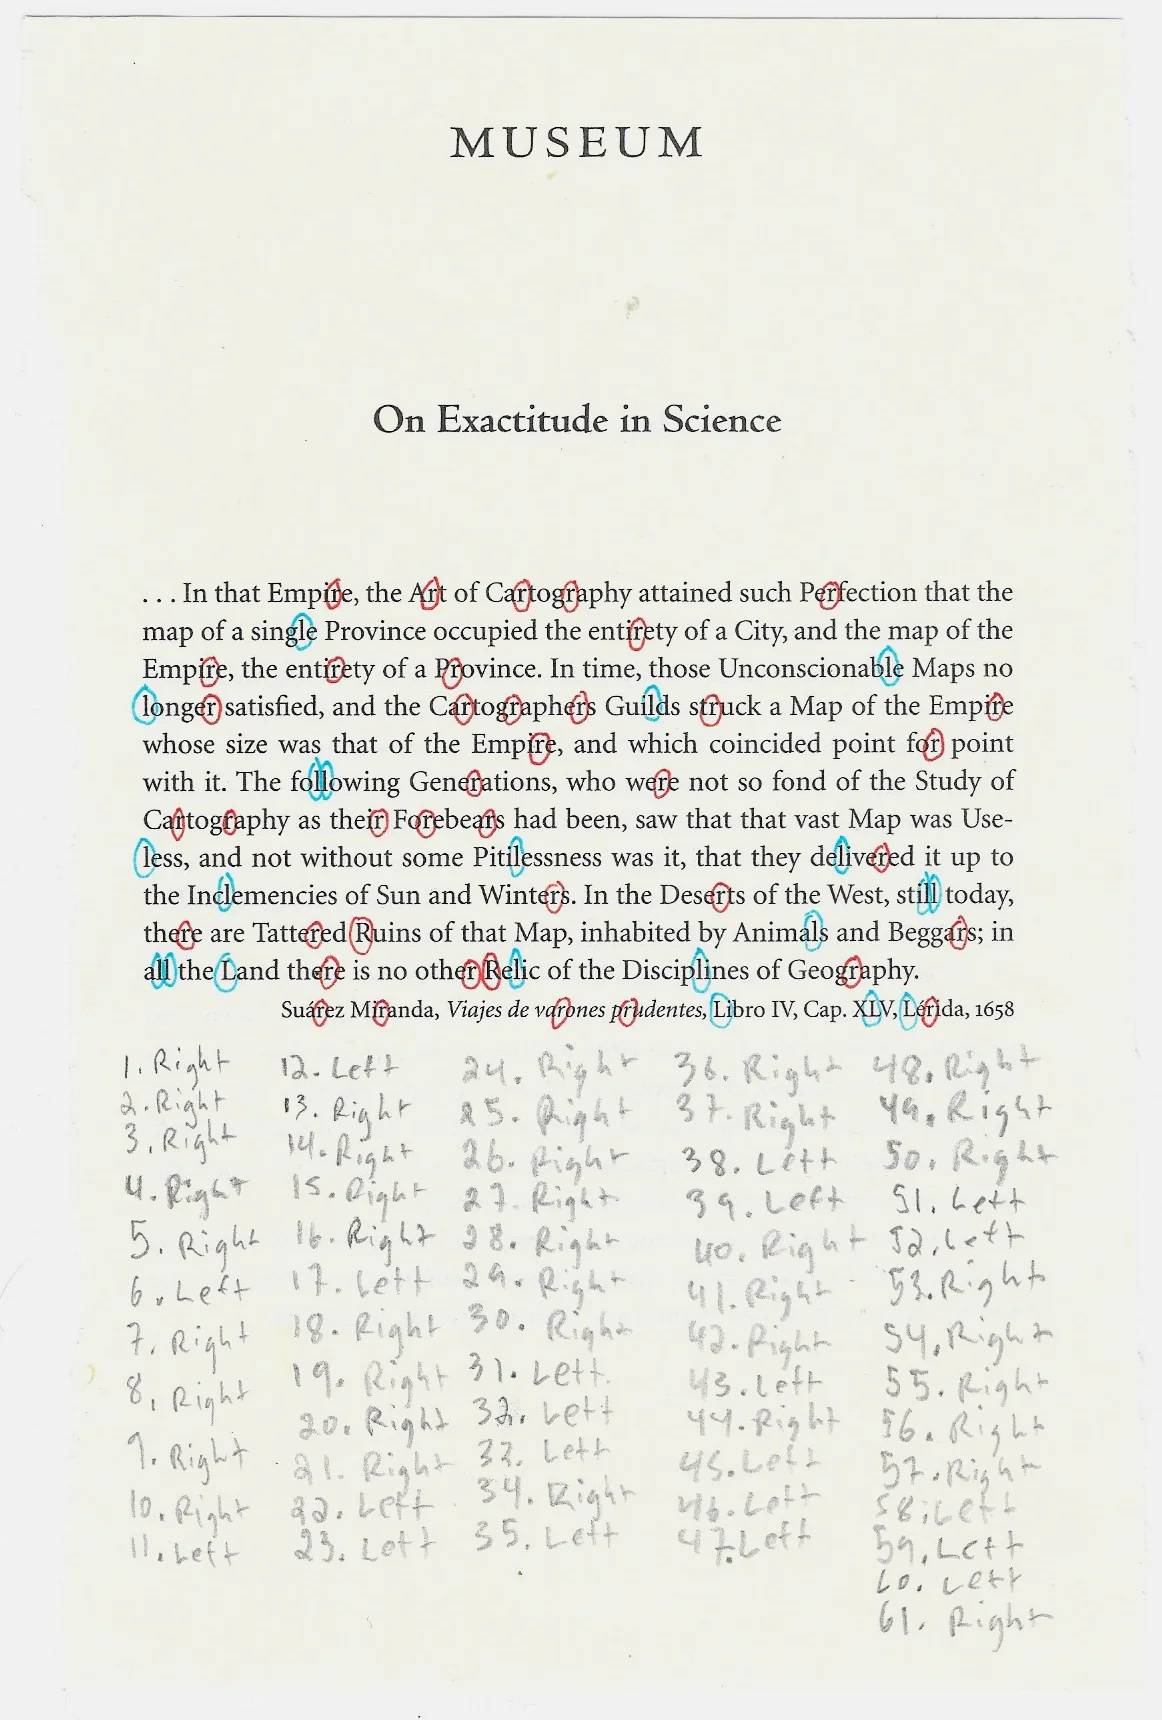 MUSEUM
On Exactitude in Science
. . . In that Empire, the Art of Cartography attained such Perfection that the
map of a single Province occupied the entirety of a City, and the map of the
Empire, the entirety of a Province. In time, those Unconscionable Maps no
longer satisfied, and the Cartographers Guilds struck a Map of the Empire
whose size was that of the Empire, and which coincided point for point
with it. The following Generations, who were not so fond of the Study of
Cartography as their Forebears had been, saw that that vast Map was Use-
less, and not without some Pitilessness was it, that they delivered it up to
the Inclemencies of Sun and Winters. In the Deserts of the West, still today,
there are Tattered Ruins of that Map, inhabited by Animals and Beggars; in
all the Land there is no other Relic of the Disciplines of Geography.
Suárez Miranda, Viajes de varones prudentes, Libro IV, Cap. XLV, Lérida, 1658
1. Right
2. Right
3. Right
4. Right
5. Right
6. Left
7. Right
8. Right
9. Right
10. Right
11. Left
12. Left
13. Right
14. Right
15. Right
16. Right
17. Left
18. Right
19. Right
20. Right
21. Right
22. Left
23. Left
24. Right
25. Right
26. Right
27. Right
28. Right
29. Right
30. Right
31. Left
32. Left
33. Left
34. Right
35. Left
36. Right
37. Right
38. Left
39. Left
40. Right
41. Right
42. Right
43. Left
44. Right
45. Left
46. Left
47. Left
48. Right
49. Right
50. Right
51. Left
52. Left
53. Right
54. Right
55. Right
56. Right
57. Right
58. Left
59. Left
60. Left
61. Right